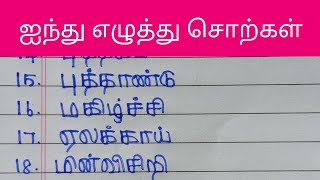 ஐந்து எழுத்து சொற்கள்
15. புத்தாண்டு
16. மகிழ்ச்சி
17. ஏலக்காய்
18. மின்விசிறி